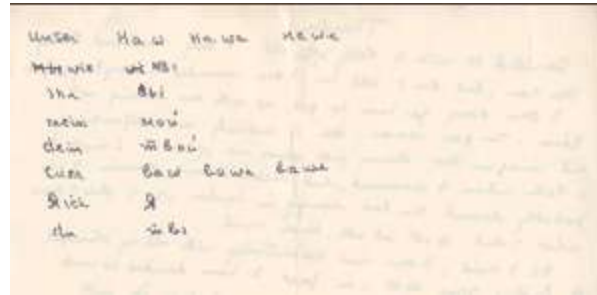 Unser Наш Наша Наше
wir мы
ihr вы
mein мой
dein твой
Euer ваш ваша ваше
ich Я
du ты